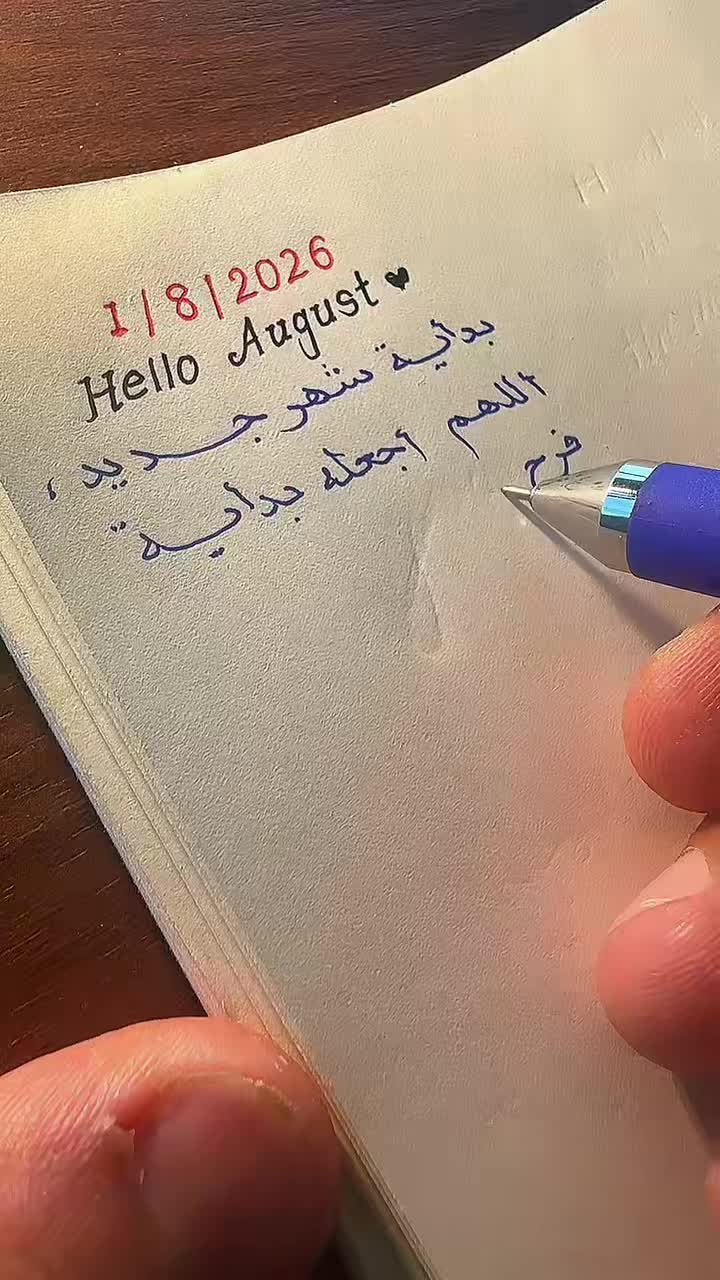 1/8/2026
Hello August ♥
بداية شهر جديد ،
اللهم اجعله بداية
فرح